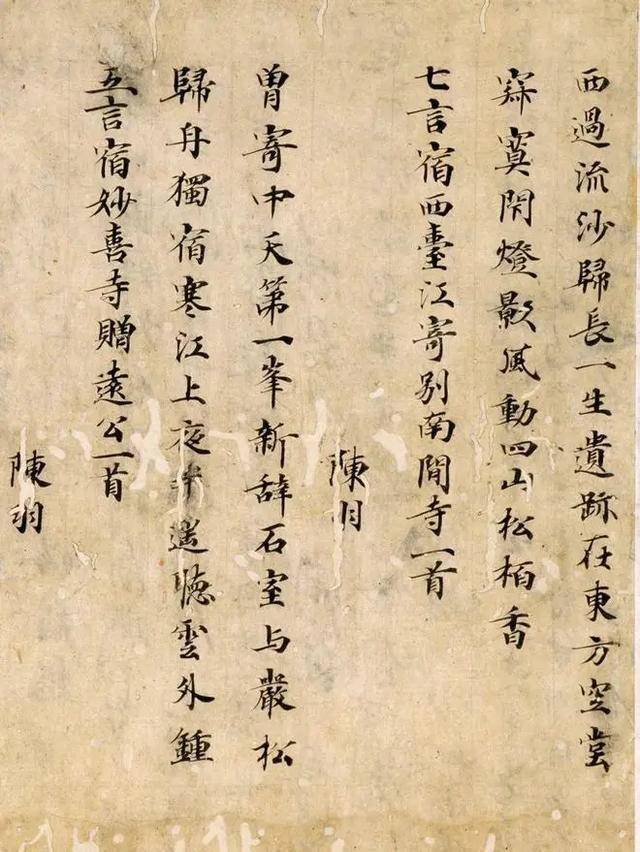 西過流沙歸長一生遺跡在東方空堂
寂寞閇燈影風動四山松栢香
七言宿西臺江寄別南閒寺一首
陳羽
曾寄中天第一峯新辞石室与嚴松
歸舟獨宿寒江上夜半遥聴雲外鍾
五言宿妙喜寺贈遠公一首
陳羽